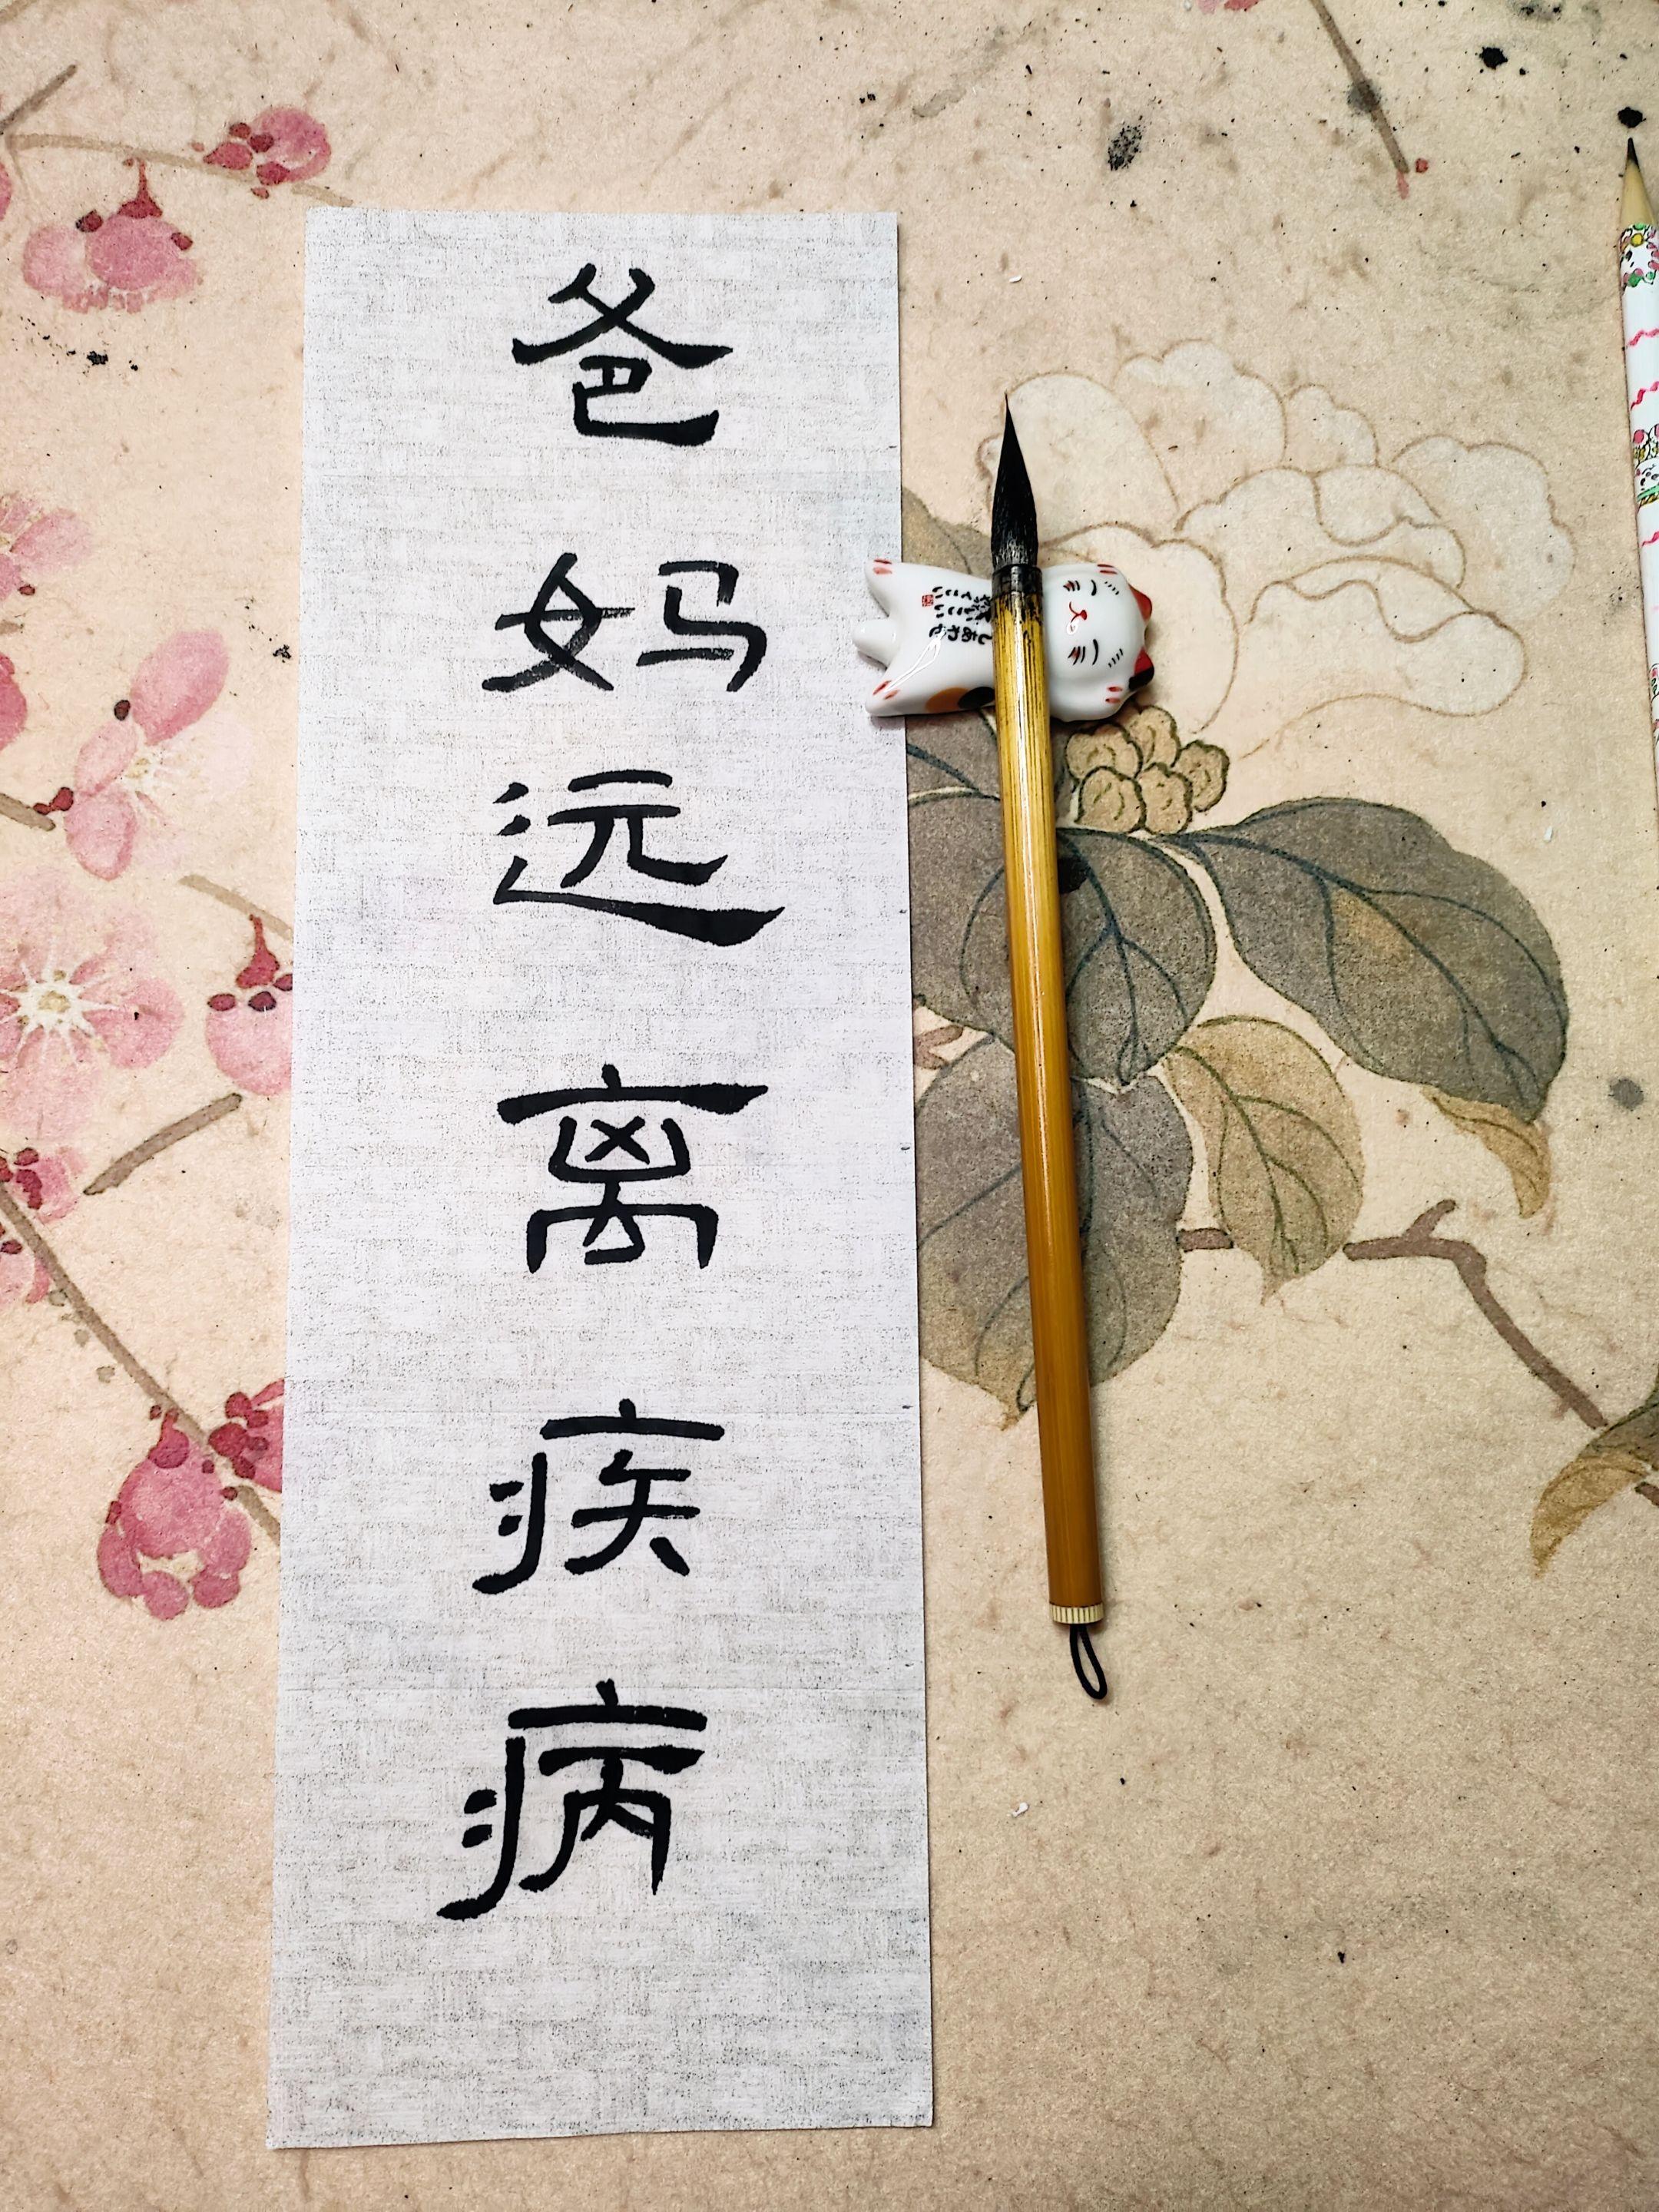 爸妈远离疾病